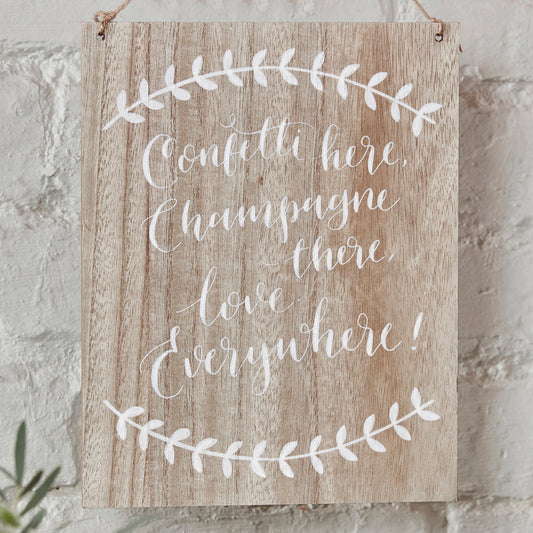 Confetti here,
Champagne
there,
love.
Everywhere!